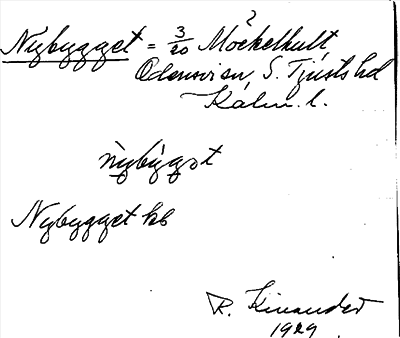 Nybygget = 3/20 Möckelhult
Odensvi sn, S. Tjusts hd
Kalm. l.
nybyggt
Nybygget kb
R. Kinander
1929